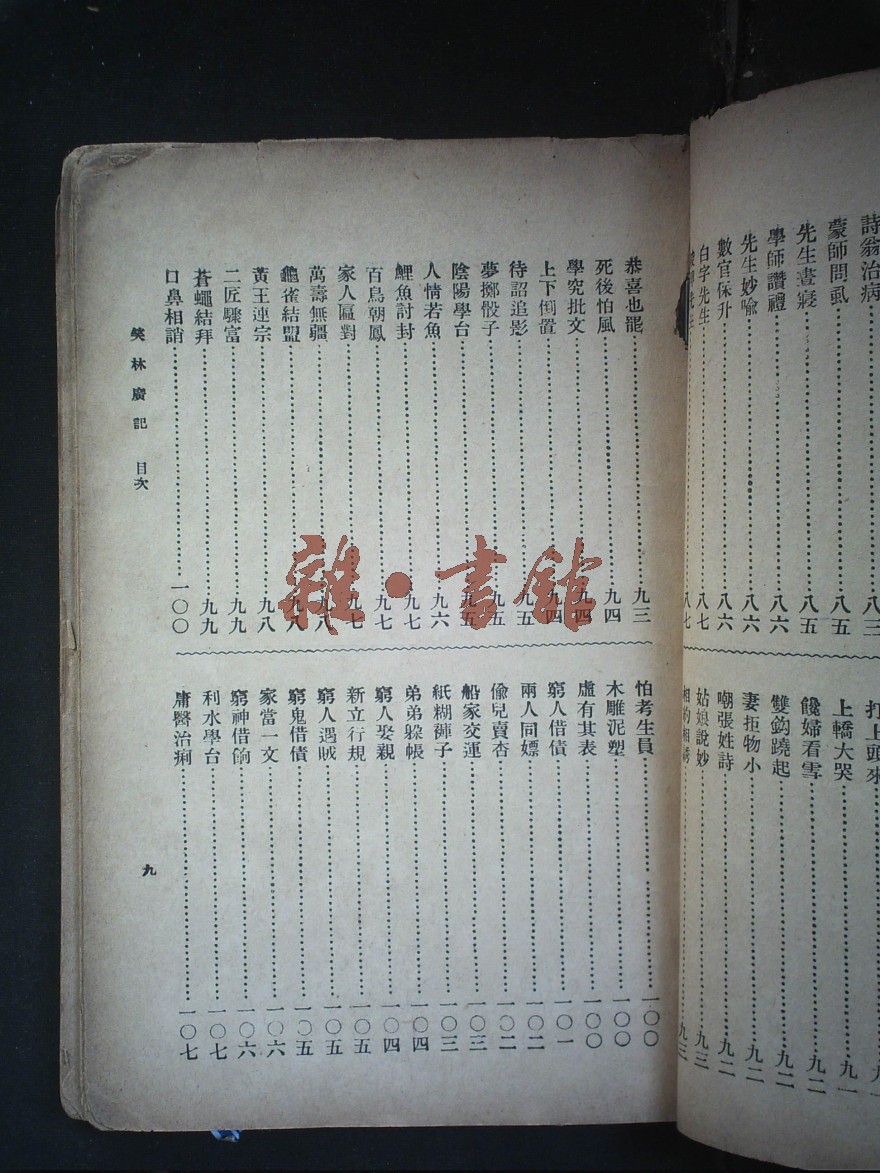 詩翁治病 八三
蒙師問虱 八五
先生晝寢 八五
學師讚禮 八六
先生妙喻 八六
數官保升 八六
白字先生 八七
八七
打上頭來
上轎大哭 九一
饞婦看雪 九二
雙鈎蹺起 九二
妻拒物小 九二
嘲張姓詩 九二
姑娘說妙 九三
相約相誘 九三
恭喜也罷 九三
死後怕風 九四
學究批文 九四
上下倒置 九四
待詔追影 九五
夢擲骰子 九五
陰陽學台 九五
人情若魚 九六
鯉魚討封 九七
百鳥朝鳳 九七
家人匾對 九七
萬壽無疆 九八
龜雀結盟 九八
黃王連宗 九八
二匠驟富 九九
蒼蠅結拜 九九
口鼻相誚 一〇〇
怕考生員 一〇〇
木雕泥塑 一〇〇
虛有其表 一〇〇
窮人借債 一〇一
兩人同嫖 一〇二
偷兒賣杏 一〇二
船家交運 一〇三
紙糊褲子 一〇三
弟弟躲帳 一〇四
窮人娶親 一〇四
新立行規 一〇五
窮人遇賊 一〇五
窮鬼借債 一〇五
家當一文 一〇六
窮神借餉 一〇六
利水學台 一〇七
庸醫治痢 一〇七
笑林廣記 目次
九
雜·書館